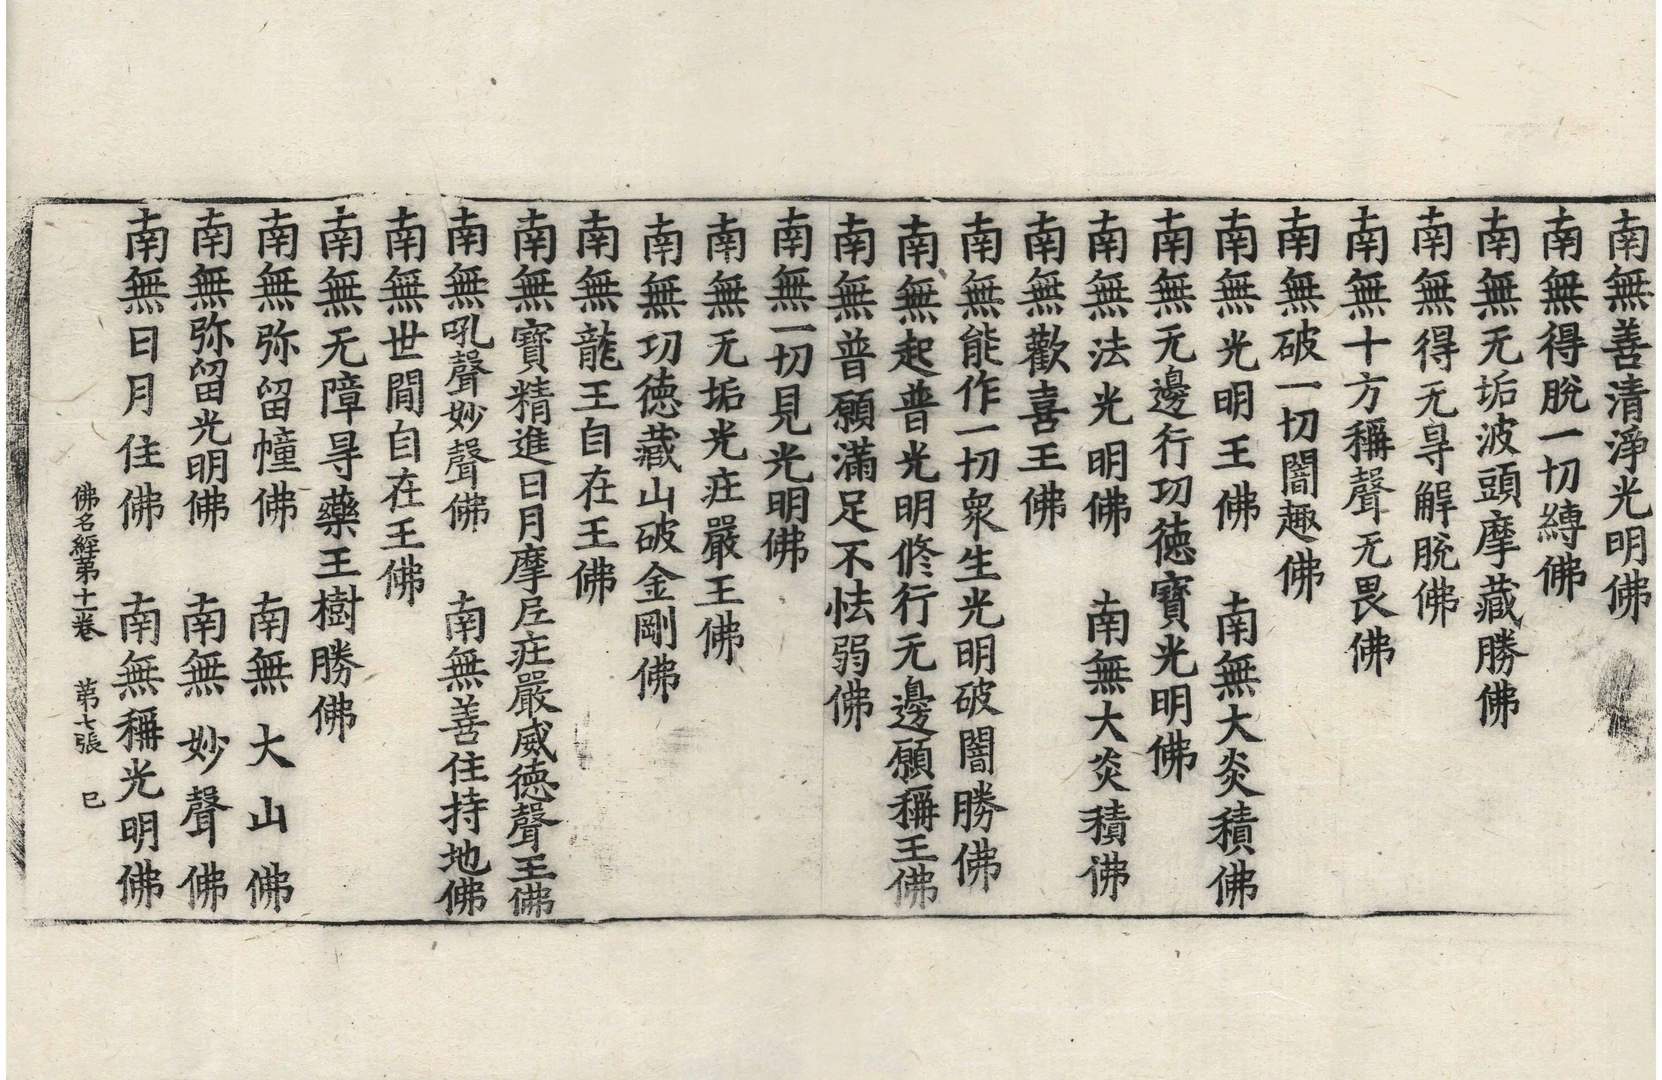 南無善清淨光明佛
南無得脫一切縛佛
南無无垢波頭摩藏勝佛
南無得无㝵解脫佛
南無十方稱聲无畏佛
南無破一切闇趣佛
南無光明王佛　南無大炎積佛
南無无邊行功德寶光明佛
南無法光明佛　南無大炎積佛
南無歡喜王佛
南無能作一切衆生光明破闇勝佛
南無起普光明修行无邊願稱王佛
南無普願滿足不怯弱佛
南無一切見光明佛
南無无垢光庄嚴王佛
南無功德藏山破金剛佛
南無龍王自在王佛
南無寶精進日月摩尼庄嚴威德聲王佛
南無吼聲妙聲佛　南無善住持地佛
南無世間自在王佛
南無无障㝵藥王樹勝佛
南無弥留幢佛　南無大山佛
南無弥留光明佛　南無妙聲佛
南無日月住佛　南無稱光明佛
佛名經第十卷　第七張　巳